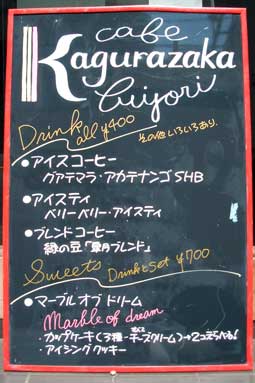 cafe
Kagurazaka
biyori
Drink
all ¥400
その他いろいろあり.
●アイスコーヒー
グアテマラ・アカテナンゴ SHB
●アイスティ
ベリーベリー・アイスティ
●ブレンドコーヒー
緑の豆「翠月ブレンド」
Sweets Drinkとset ¥700
●マーブル オブ ドリーム
Marble of dream
・カップケーキ(3種-チーズクリーム)→2コえらべる!
・アイシングクッキー